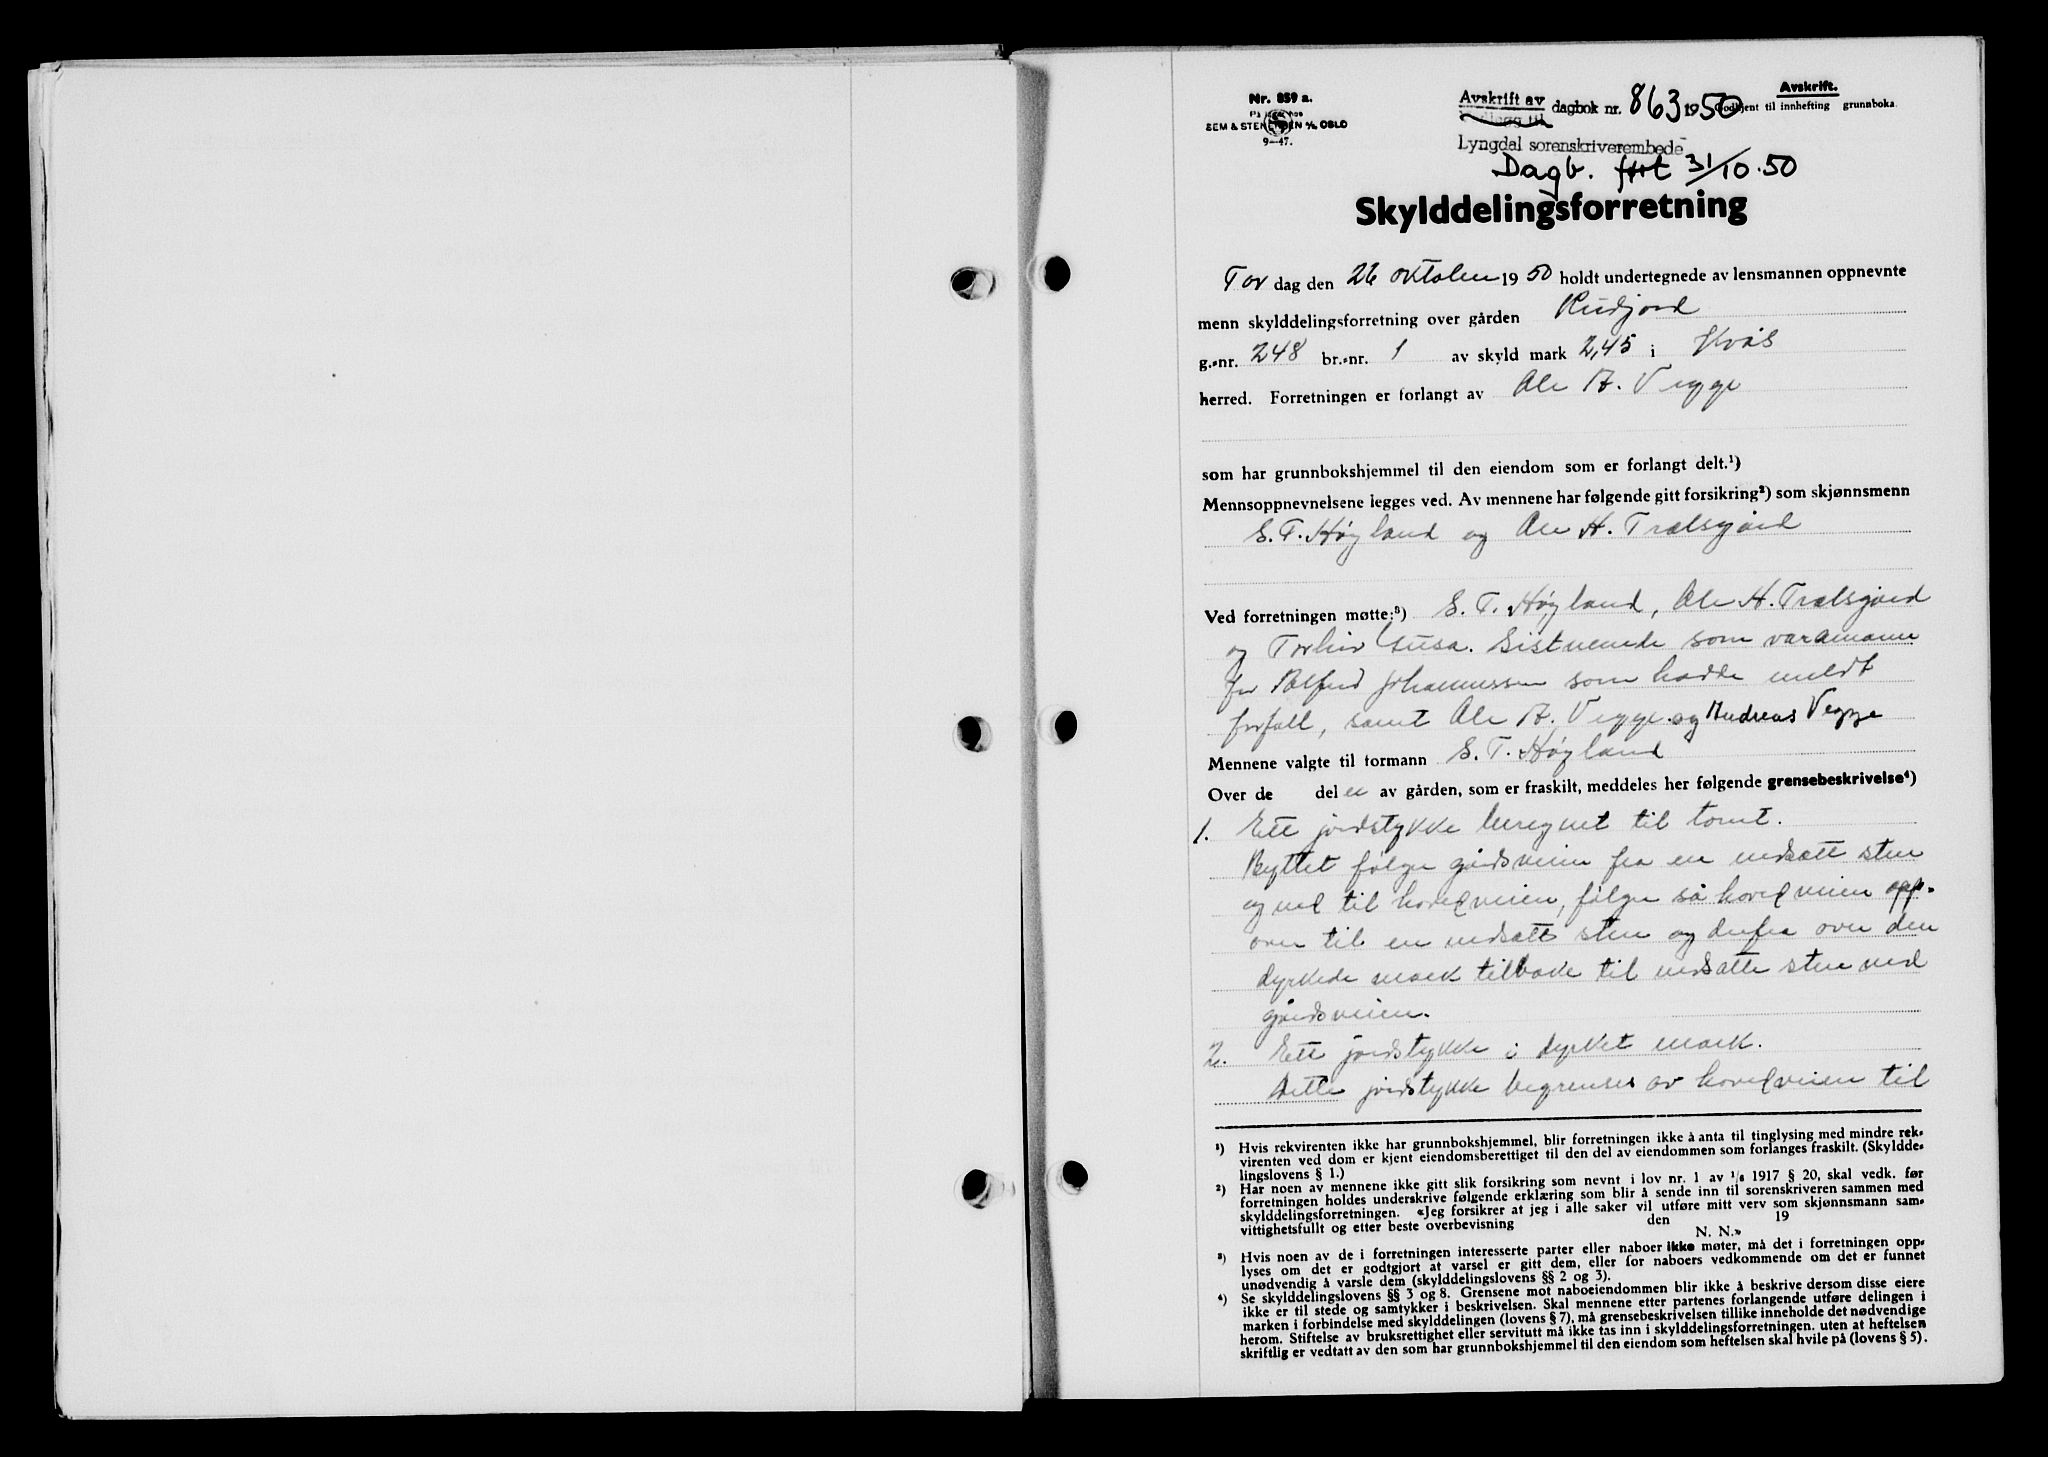 Nr. 859 a.
SEM & STENERSEN A/S OSLO
9—47.
Avskrift av dagbok nr. 863 1950
Avskrift.
Godkjent til innhefting grunnboka.
Lyngdal sorenskriverembede
Dagb. ført 31/10.50
Skylddelingsforretning
Tor dag den 26 oktober 1950 holdt undertegnede av lensmannen oppnevnte
menn skylddelingsforretning over gården Rudjord
g.-nr. 248 br.-nr. 1 av skyld mark 2,45 i Kvås
herred. Forretningen er forlangt av Ole A. Vegge
som har grunnbokshjemmel til den eiendom som er forlangt delt.¹)
Mennsoppnevnelsene legges ved. Av mennene har følgende gitt forsikring²) som skjønnsmenn
S. T. Høyland og Ole H. Trælsgård
Ved forretningen møtte:³) S. T. Høyland, Ole H. Trælsgård
og Torleiv Gusa. Sistnevnte som varamann
for Alfred Johannessen som hadde meldt
forfall, samt Ole A. Vegge og Andreas Vegge
Mennene valgte til formann S. T. Høyland
Over de del er av gården, som er fraskilt, meddeles her følgende grensebeskrivelse⁴)
1. Ett jordstykke beregnet til tomt.
Byttet følger gårdsveien fra en nedsatt sten
og ned til hovedveien, følger så hovedveien opp-
over til en nedsatt sten og derfra over den
dyrkede mark tilbake til nedsatte sten ved
gårdsveien.
2. Ett jordstykke i dyrket mark.
Dette jordstykke begrenses av hovedveien til
¹) Hvis rekvirenten ikke har grunnbokshjemmel, blir forretningen ikke å anta til tinglysing med mindre rek-
virenten ved dom er kjent eiendomsberettiget til den del av eiendommen som forlanges fraskilt. (Skyldde-
lingslovens § 1.)
²) Har noen av mennene ikke gitt slik forsikring som nevnt i lov nr. 1 av 1/6 1917 § 20, skal vedk. før
forretningen holdes underskrive følgende erklæring som blir å sende inn til sorenskriveren sammen med
skylddelingsforretningen. «Jeg forsikrer at jeg i alle saker vil utføre mitt verv som skjønnsmann sam-
vittighetsfullt og etter beste overbevisning den 19
N. N.»
³) Hvis noen av de i forretningen interesserte parter eller naboer ikke møter, må det i forretningen opp-
lyses om det er godtgjort at varsel er gitt dem, eller for naboers vedkommende om det er funnet
unødvendig å varsle dem (skylddelingslovens §§ 2 og 3).
⁴) Se skylddelingslovens §§ 3 og 8. Grensene mot naboeiendommen blir ikke å beskrive dersom disse eiere
ikke er til stede og samtykker i beskrivelsen. Skal mennene etter partenes forlangende utføre delingen i
marken i forbindelse med skylddelingen (lovens § 7), må grensebeskrivelsen tillike inneholde det nødvendige
herom. Stiftelse av bruksrettighet eller servitutt må ikke tas inn i skylddelingsforretningen, uten at heftelsen
skriftlig er vedtatt av den som har grunnbokshjemmel til den eiendom som heftelsen skal hvile på (lovens § 5).